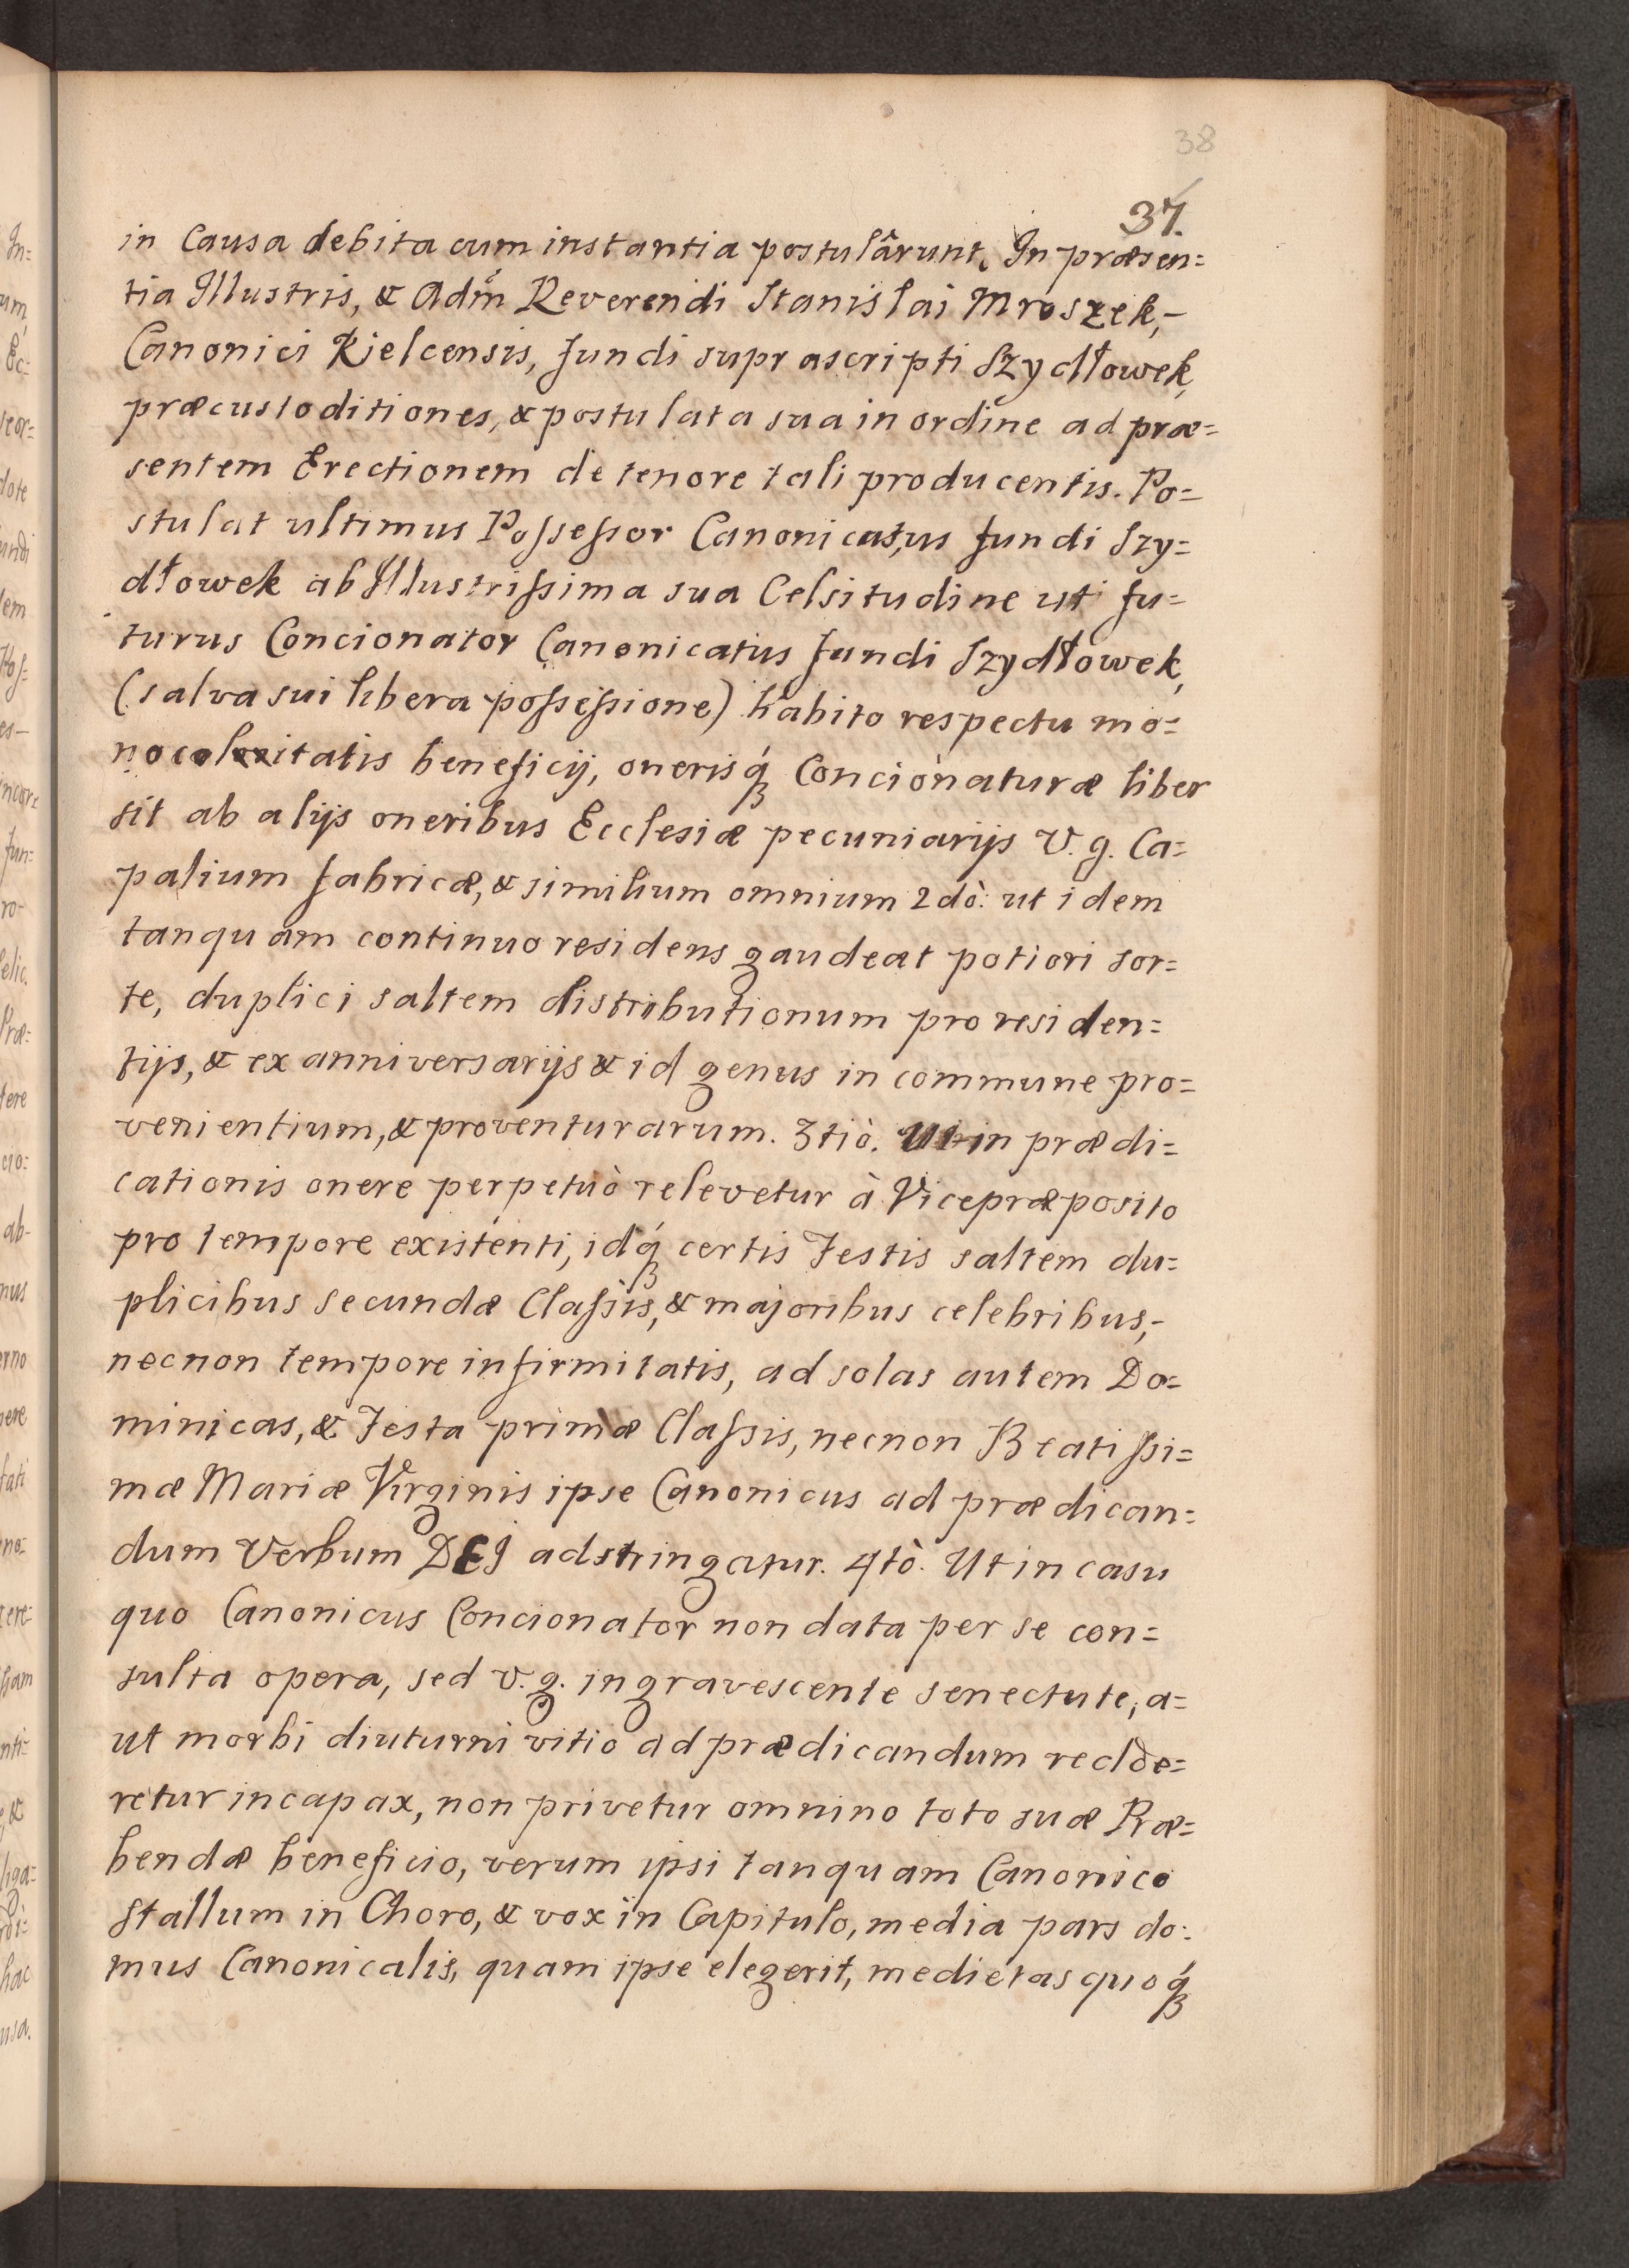 38
37.
in Causa debita cum instantia postulârunt. In præsen=
tia Illustris, & Adm̃ Reverendi Stanislai Mroszek,-
Canonici Kielcensis, fundi suprascripti Szydłowek,
præcustoditiones, & postulata sua in ordine ad præ=
sentem Erectionem de tenore tali producentis. Po=
stulat ultimus Poſseſsor Canonicatus fundi Szy=
dłowek ab Illustriſsima sua Celsitudine uti fu=
turus Concionator Canonicatus fundi Szydłowek,
(salva sui libera poſseſsione) habito respectu mo=
nocol itatis beneficij, onerisq́ Concionaturæ liber
sit ab alijs oneribus Ecclesiæ pecuniarijs V. g. Ca=
palium fabricæ, & similium omnium 2dò: ut idem
tanquam continuo residens gaudeat potiori sor=
te, duplici saltem distributionum pro residen=
tijs, & ex anniversarijs & id genus in commune pro=
venientium, & proventurarum. 3tiò. Ut in prædi=
cationis onere perpetuò relevetur à Vicepræposito
pro tempore existenti, idq́ certis Festis saltem du=
plicibus secundæ Claſsis, & majoribus celebribus,-
necnon tempore infirmitatis, ad solas autem Do=
minicas, & Festa primæ Claſsis, necnon Beatiſsi=
mæ Mariæ Virginis ipse Canonicus ad prædican=
dum Verbum DEI adstringatur. 4tò. Ut in casu
quo Canonicus Concionator non data per se con=
sulta opera, sed v. g. ingravescente senectute, a=
ut morbi diuturni vitio ad prædicandum redde=
retur incapax, non privetur omnino toto suæ Præ=
bendæ beneficio, verum ipsi tanquam Canonico
Stallum in Choro, & vox in Capitulo, media pars do:
mus Canonicalis, quam ipse elegerit, medietas quoq́